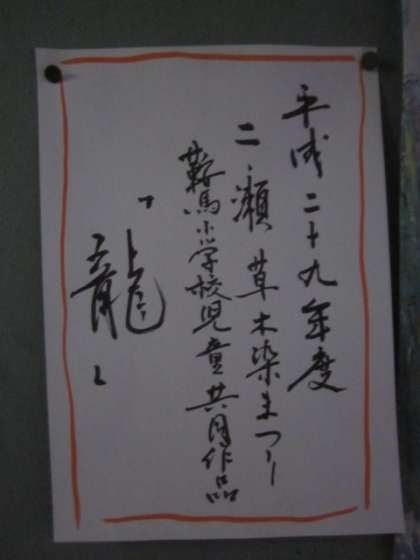 平成二十九年度
二ノ瀬草木染まつり
鞍馬小学校児童共同作品
「龍」